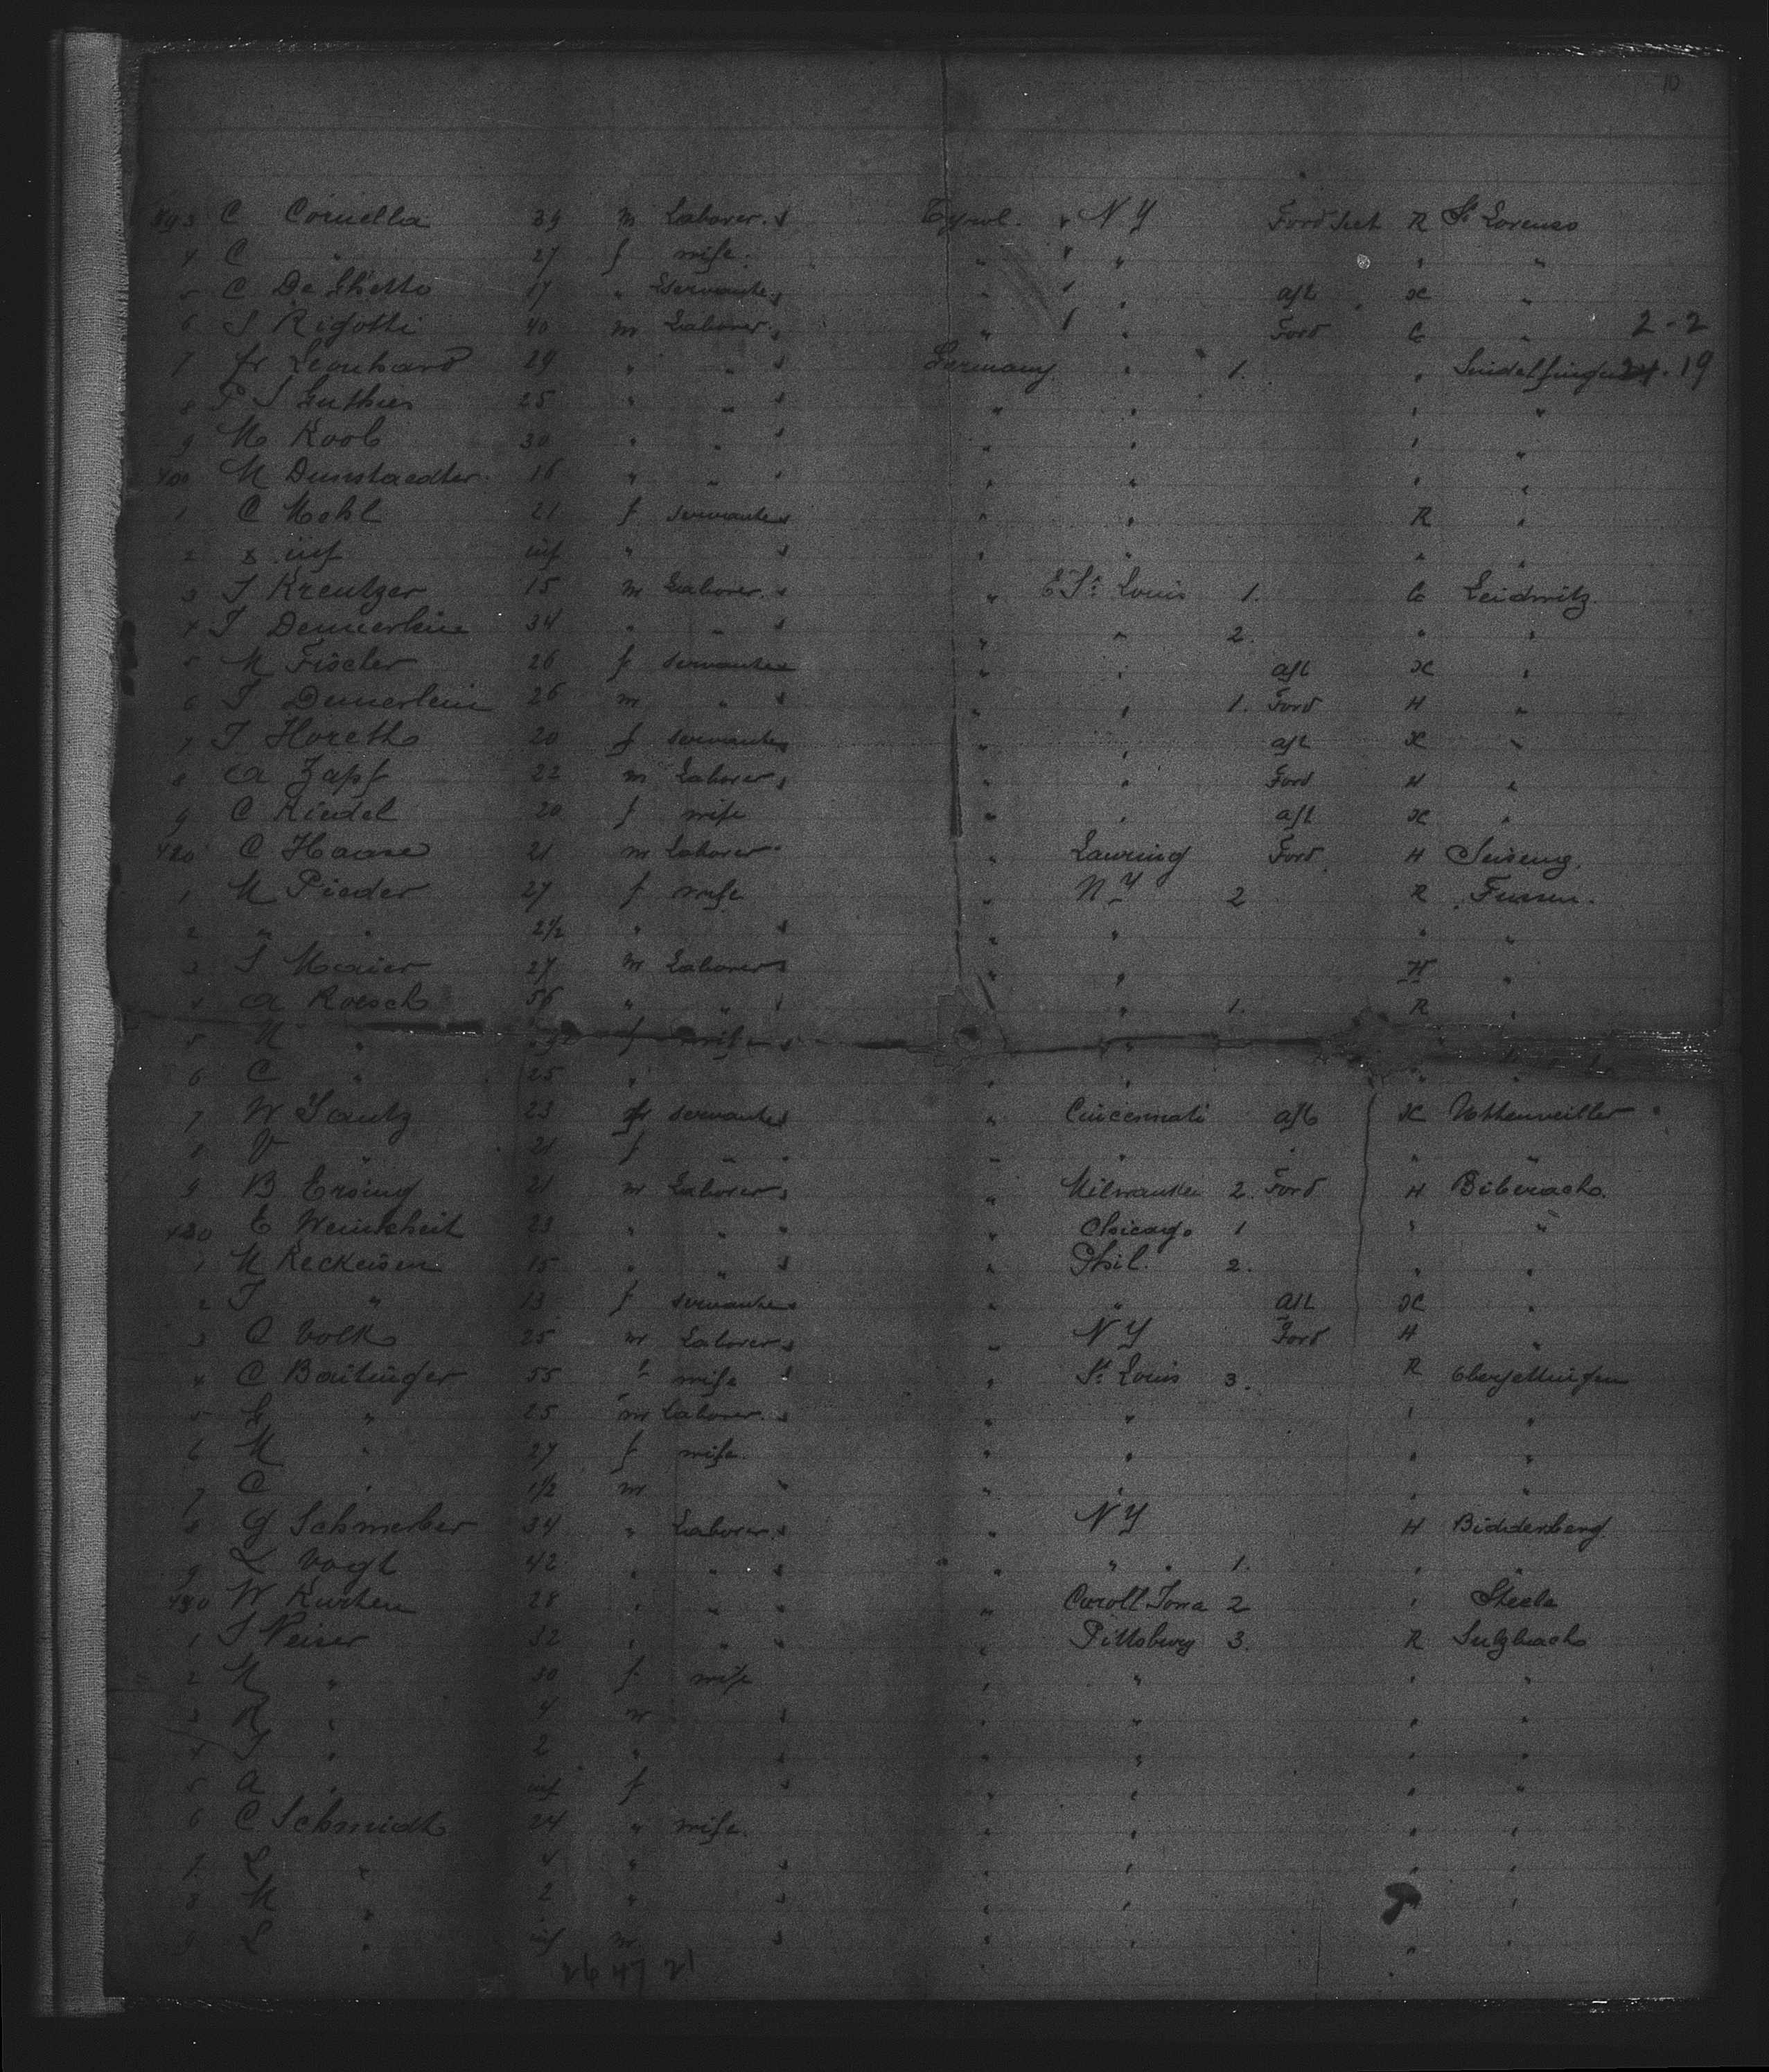 10
393 C Cornella 39 m Laborer. s Tyrol. " N Y Ford Sect R St Lorenzo
4 C " 27 f wife. " " " " "
5 C De Ghetto 17 " Servante s " " " aft x "
6 S Rigotti 40 m Laborer. s " " " Ford C " 2-2
7 fr Leonhard 29 " " s Germany " 1. " 19
8 P S Guthier 25 " " s " " " "
9 M Koob 30 " " s " " " "
400 M Dunstaedter 16 " " s " " " "
1 C Mohl 21 f servante s " " R "
2 s inf inf " s " " " "
3 J Kreutzer 15 m Laborer. s " E St Louis 1. C Leidwitz.
4 J Demerlein 34 " " s " " 2. " "
5 M Fischer 26 f servante s " " aft x "
6 J Demerlein 26 m " s " " 1. Ford H "
7 J Horeth 20 f servante s " " aft x "
8 A Zapf 22 m Laborer s " " Ford H "
9 C Riedel 20 f wife " " aft x "
C Haase 21 m Laborer " " Ford H
1 M Pieder 27 f wife " N Y 2 R Fussen.
2 " " 2½ " s " " " "
3 J Maier 27 m Laborer s " " H "
4 A Roesch 56 " " s " " 1. R "
5 M " f wife s " "
6 C " 25 " " " " "
7 W Tautz 23 servante s " Cincennati aft x
8 V " 21 f " " " " " " "
9 B Ersing 21 m Laborer s " Milwaukee 2. Ford H Biberach.
E Weinscheit 23 " " " " Chicago 1 " "
1 M Reckeisen 15 " " s " Phil. 2. " "
2 J " 13 f servante s " " aft x "
3 C Volk 25 m Laborer s " N Y Ford H "
4 C Baitinger 55 f wife s " St Louis 3. R Oberjettingen
5 G " 25 m Laborer. s " " " "
6 M " 27 f wife. " " " "
7 C " 1½ m " " " " "
8 G Schmerber 34 " Laborer s " N Y H Bidderberg
9 L Vogt 42 " " s " " " 1. " "
W Kurten 28 " " " " Caroll Iowa 2 " Steele
1 J Neiser 32 " " " " Pittsburg 3. R Sulzbach
2 M " 30 f wife " " " "
3 R " 4 m s " " " "
4 J " 2 " s " " " "
5 A " inf f s " " " "
6 C Schmidt 24 " wife. " " " "
7 L " 4 " s " " " "
8 M " 2 " s " " "
9 L " inf m s " " " "
26 47 21